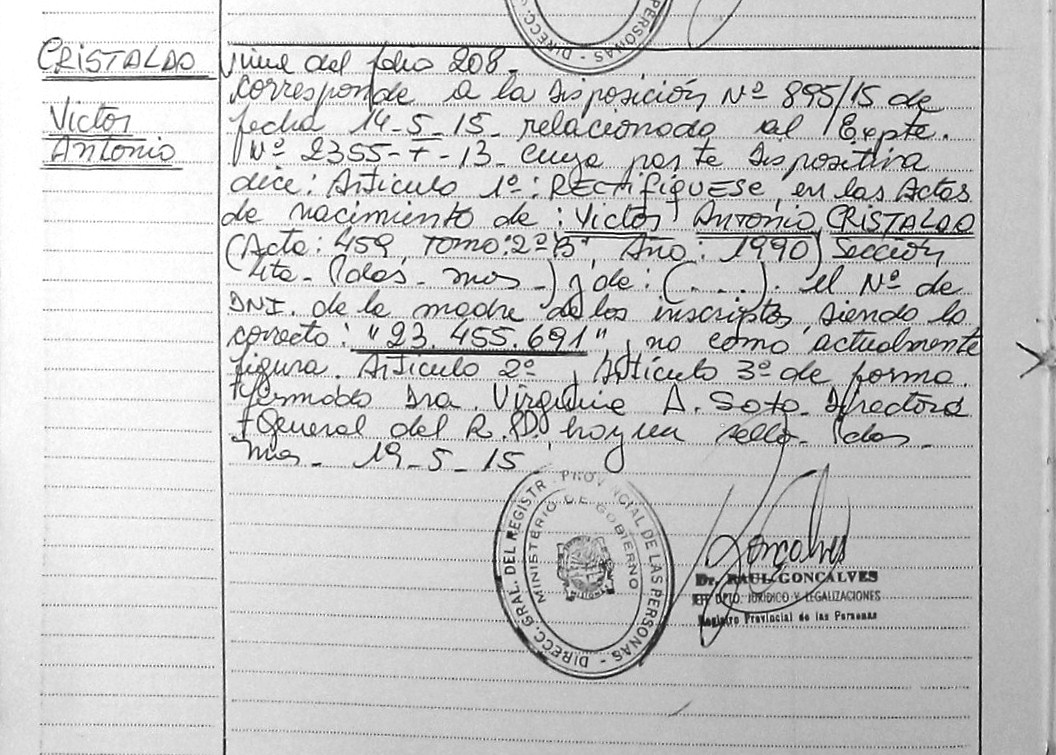 CRISTALDO
Victor
Antonio
PERSONAS - DIRECC.
Viene del folio 208.
corresponde a la Disposición Nº 895/15 de
fecha 14-5-15- relacionado al Expte.
Nº 2355-T-13- cuya parte Dispositiva
dice: Articulo 1º: RECTIFIQUESE, en las Actas
de nacimiento de: Victor Antonio CRISTALDO
(Acta: 459, Tomo: 2º"B", Año: 1990) Sección
Pdas. mns-) y de: (....). el Nº de
DNI. de la madre de los inscriptos, siendo lo
correcto: "23.455.691", no como actualmente
figura. Articulo 2º, Artículo 3º de forma.
Firmado Dra. A. Soto. Directora
General del R.P. hay un sello. Pdas-
mns- 19-5-15
DIRECC. GRAL. DEL REGISTR. PROVINCIAL DE LAS PERSONAS -
MINISTERIO DE GOBIERNO
Gonçalves
Dr. RAUL GONCALVES
JEFE DPTO. JURIDICO Y LEGALIZACIONES
Registro Provincial de las Personas